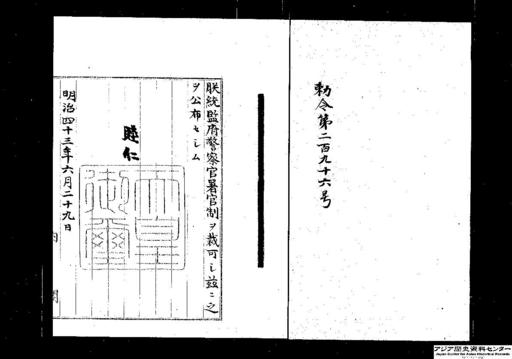 勅令第二百九十六号
朕統監府警察官署官制ヲ裁可シ茲ニ之
ヲ公布セシム
睦仁
天皇御璽
明治四十三年六月二十九日
内閣
アジア歴史資料センター
Japan Center for Asian Historical Records